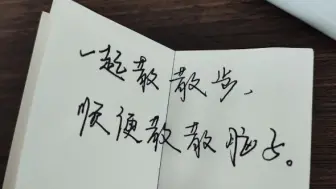 一起散散步,
顺便散散脑子。